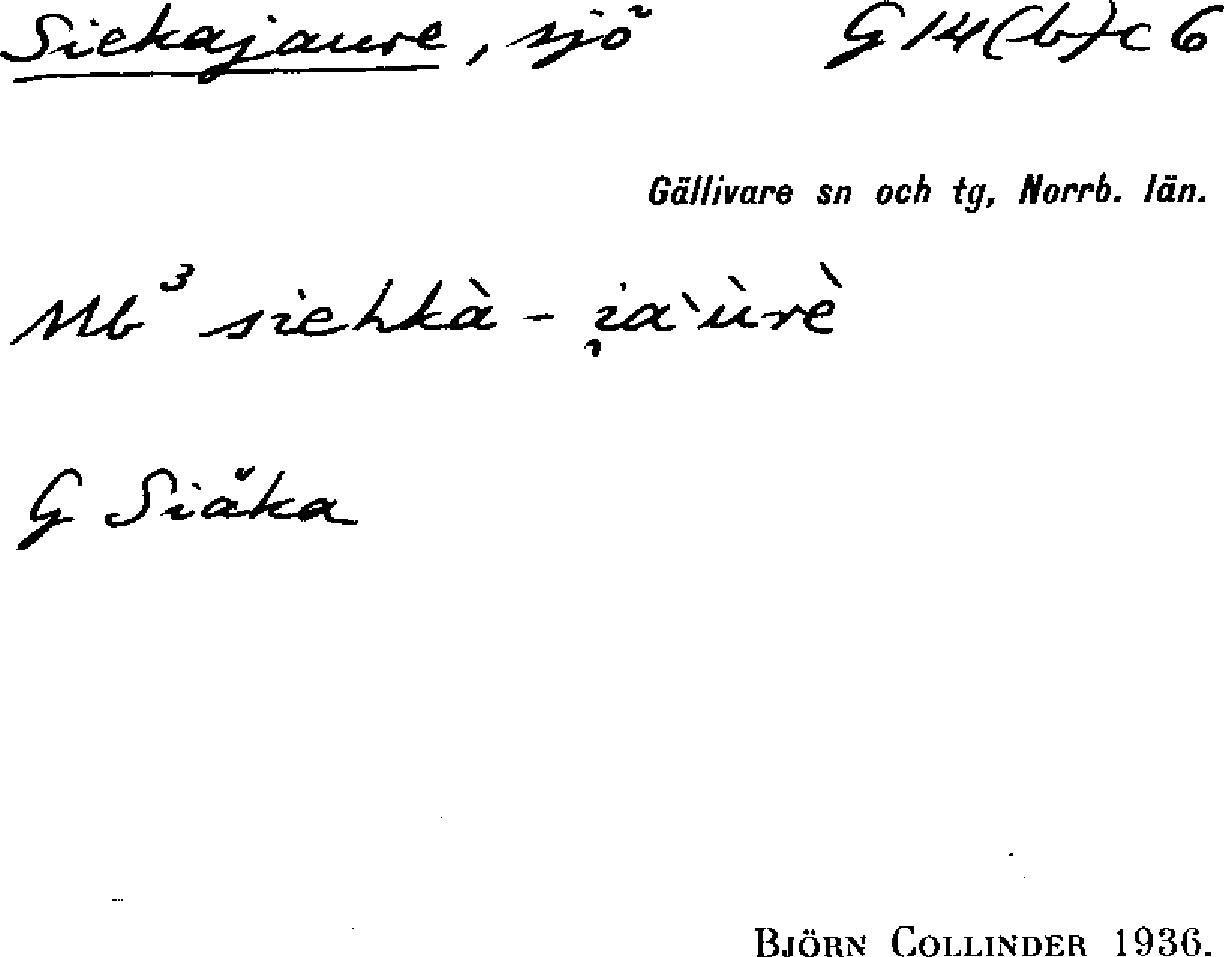 Siekajaure, sjö G 14(b)c 6
Gällivare sn och tg, Norrb. län.
Mb³ siehkà - i̯a`ùrè
G Siǎka
BJÖRN COLLINDER 1936.